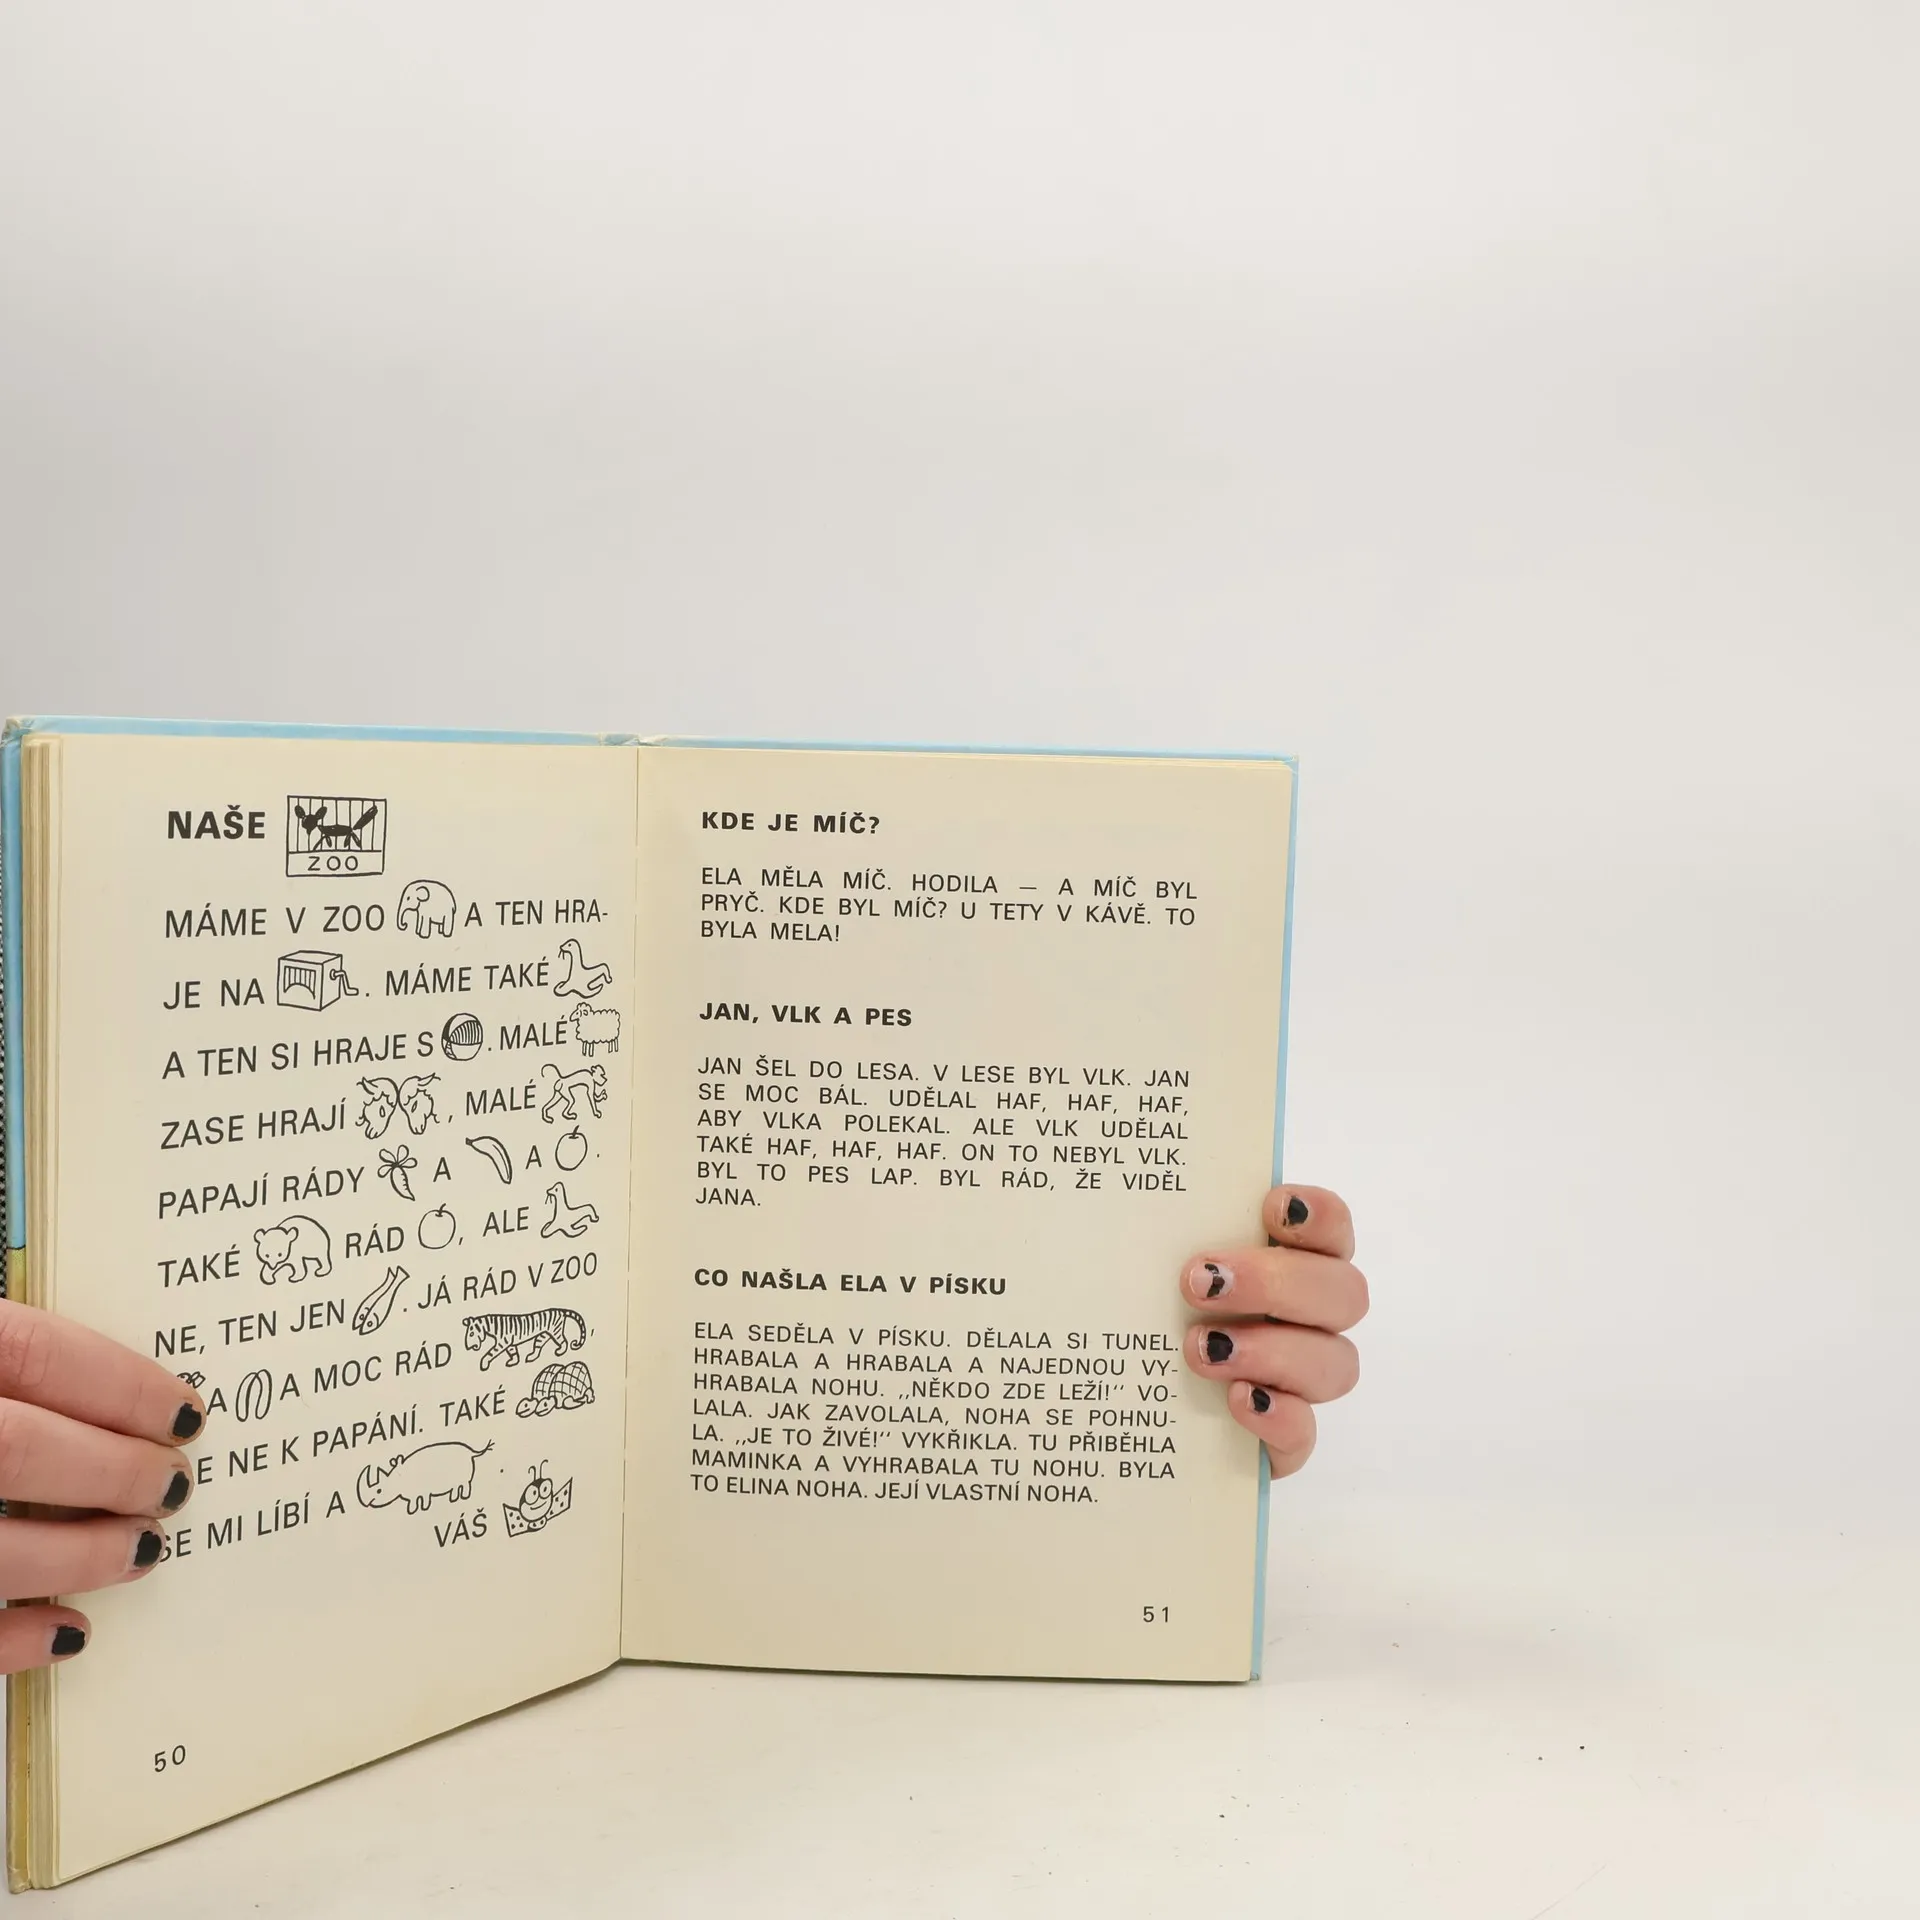 NAŠE
ZOO
MÁME V ZOO A TEN HRA-
JE NA . MÁME TAKÉ
A TEN SI HRAJE S . MALÉ
ZASE HRAJÍ , MALÉ
PAPAJÍ RÁDY A A .
TAKÉ RÁD , ALE
NE, TEN JEN . JÁ RÁD V ZOO
A A MOC RÁD ,
NE K PAPÁNÍ. TAKÉ
SE MI LÍBÍ A .
VÁŠ
50
KDE JE MÍČ?
ELA MĚLA MÍČ. HODILA — A MÍČ BYL
PRYČ. KDE BYL MÍČ? U TETY V KÁVĚ. TO
BYLA MELA!
JAN, VLK A PES
JAN ŠEL DO LESA. V LESE BYL VLK. JAN
SE MOC BÁL. UDĚLAL HAF, HAF, HAF,
ABY VLKA POLEKAL. ALE VLK UDĚLAL
TAKÉ HAF, HAF, HAF. ON TO NEBYL VLK.
BYL TO PES LAP. BYL RÁD, ŽE VIDĚL
JANA.
CO NAŠLA ELA V PÍSKU
ELA SEDĚLA V PÍSKU. DĚLALA SI TUNEL.
HRABALA A HRABALA A NAJEDNOU VY-
HRABALA NOHU. „NĚKDO ZDE LEŽÍ!“ VO-
LALA. JAK ZAVOLALA, NOHA SE POHNU-
LA. „JE TO ŽIVÉ!“ VYKŘIKLA. TU PŘIBĚHLA
MAMINKA A VYHRABALA TU NOHU. BYLA
TO ELINA NOHA. JEJÍ VLASTNÍ NOHA.
51